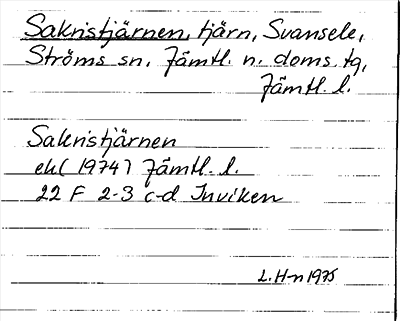 Sakristjärnen, tjärn, Svansele,
Ströms sn, Jämtl. n. doms. tg,
Jämtl. l.
Sakristjärnen
ek( 1974) Jämtl. l.
22 F 2-3 c-d Inviken
L. H-n 1975